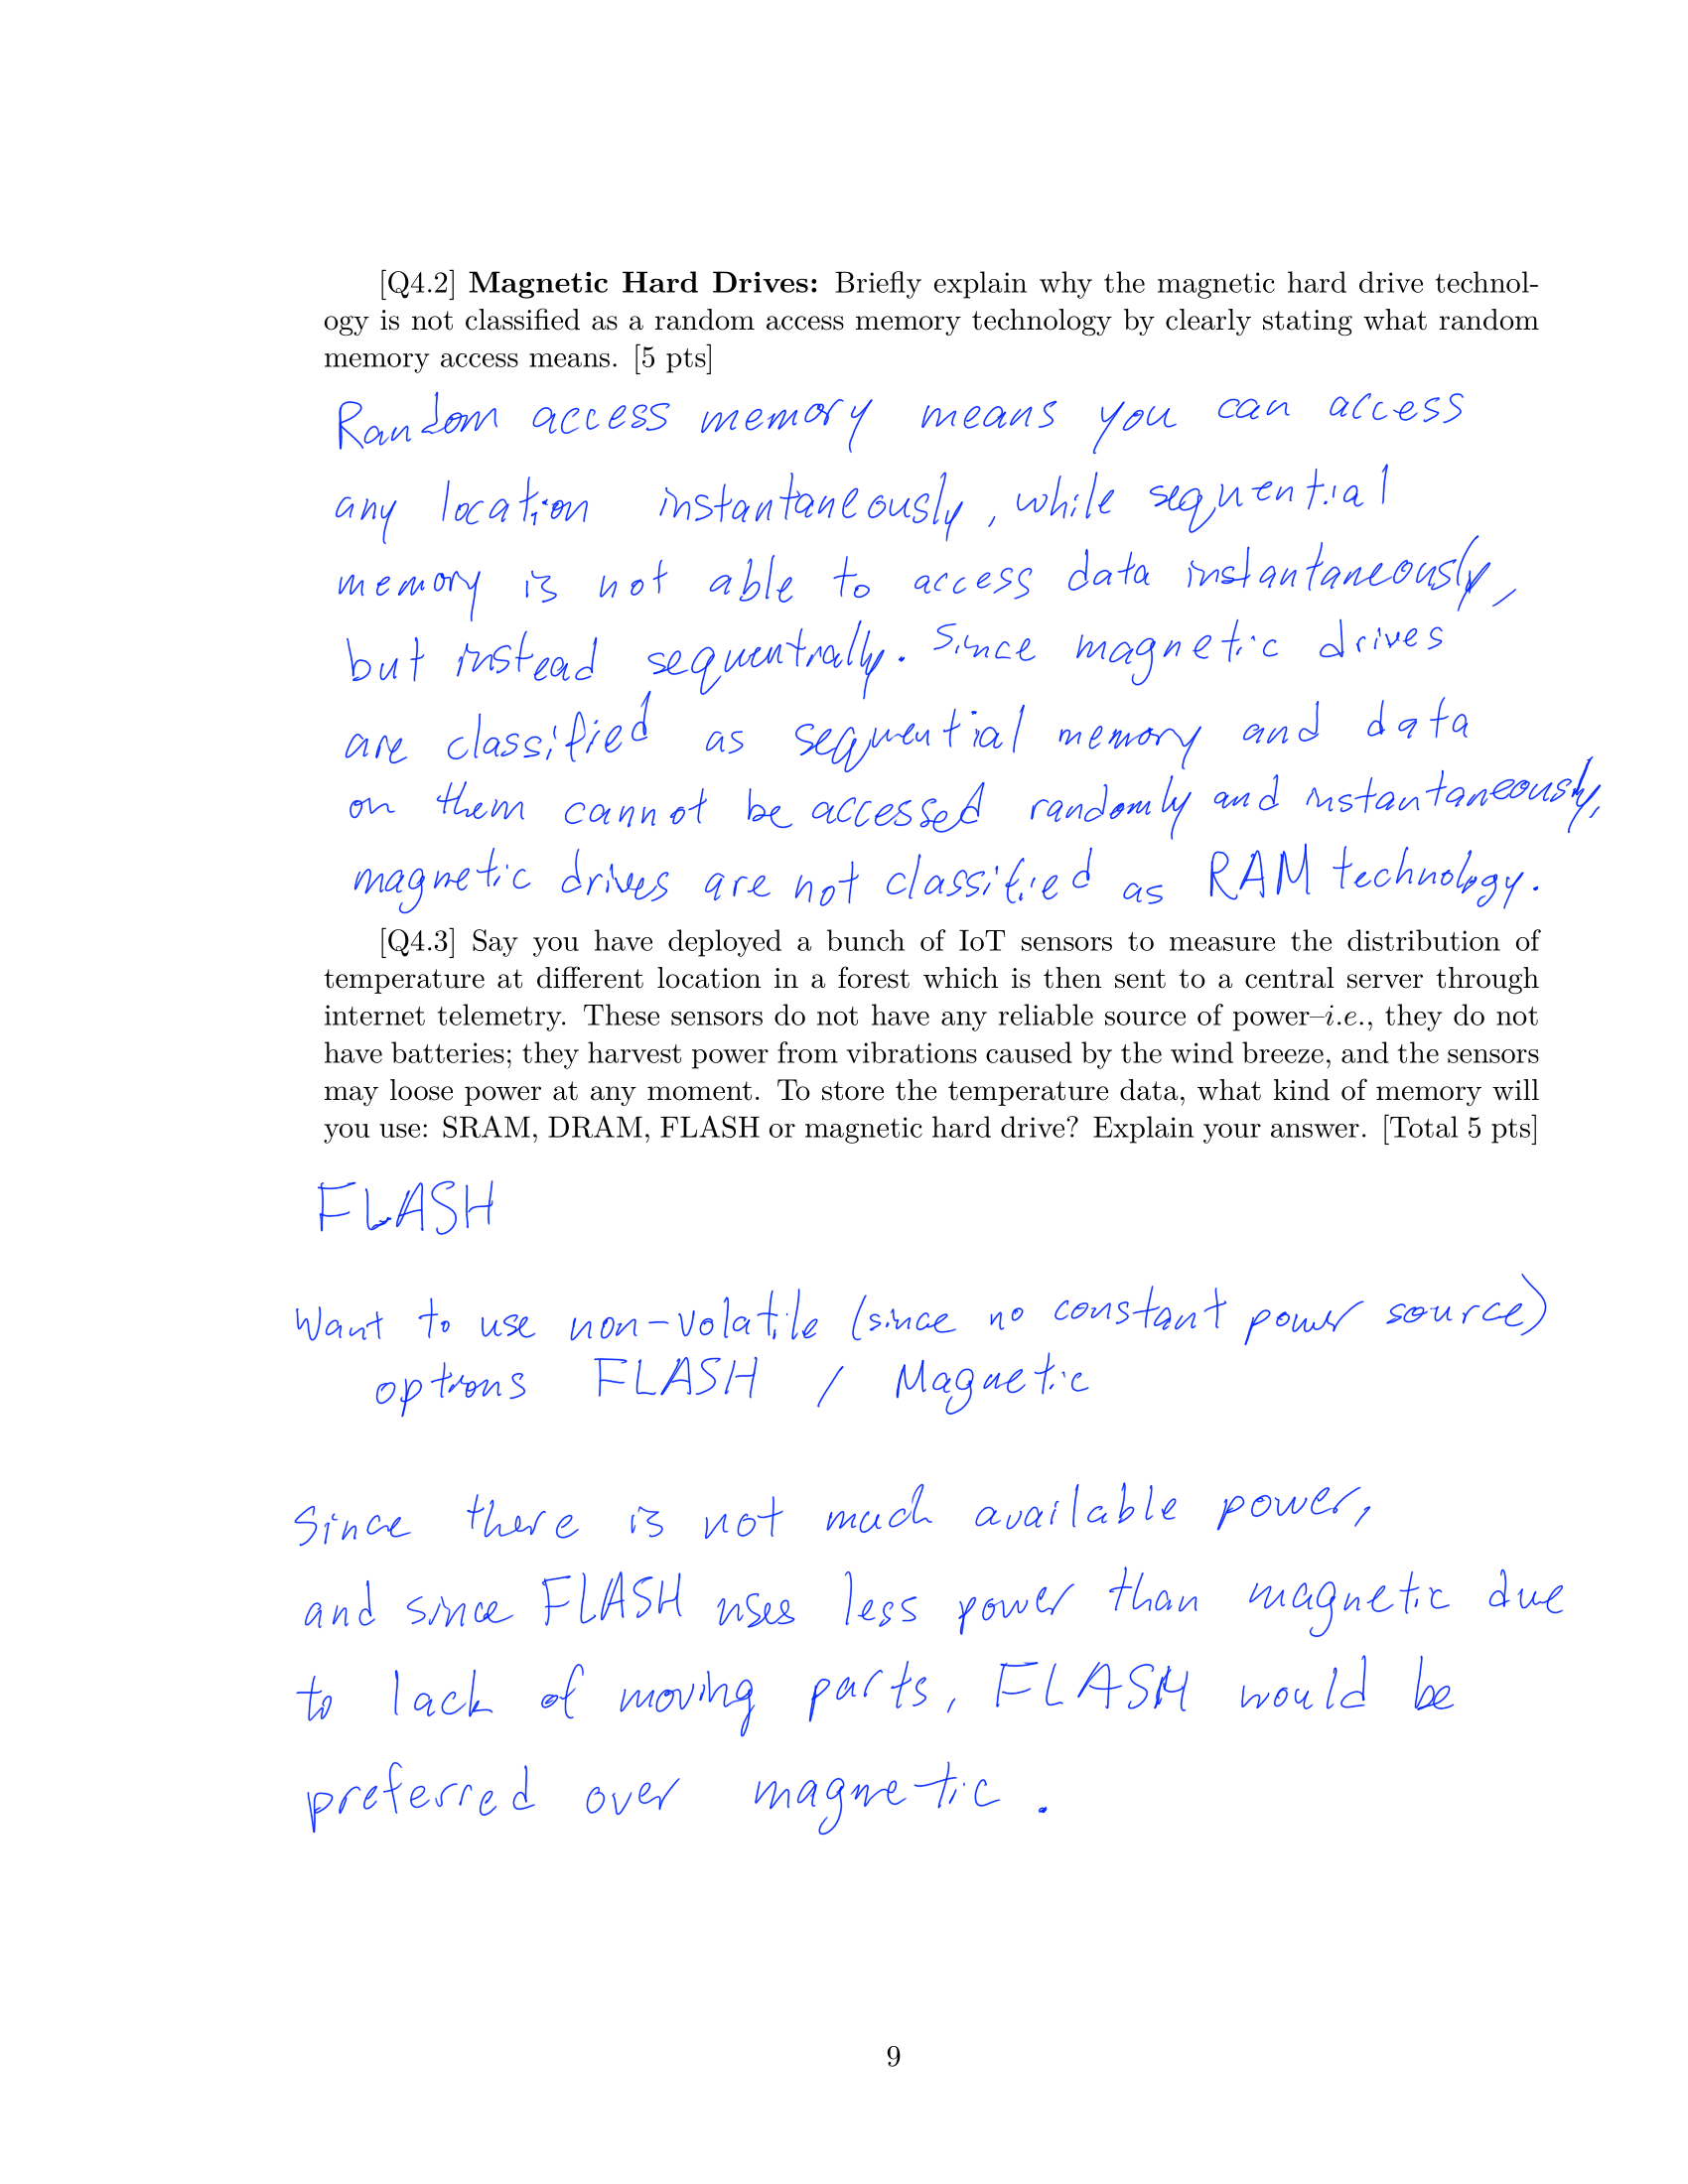 [Q4.2] Magnetic Hard Drives: Briefly explain why the magnetic hard drive technol-
ogy is not classified as a random access memory technology by clearly stating what random
memory access means. [5 pts]
Random access memory means you can access
any location instantaneously, while sequential
memory is not able to access data instantaneously,
but instead sequentially. Since magnetic drives
are classified as sequential memory and data
on them cannot be accessed randomly and instantaneously,
magnetic drives are not classified as RAM technology.
[Q4.3] Say you have deployed a bunch of IoT sensors to measure the distribution of
temperature at different location in a forest which is then sent to a central server through
internet telemetry. These sensors do not have any reliable source of power–i.e., they do not
have batteries; they harvest power from vibrations caused by the wind breeze, and the sensors
may loose power at any moment. To store the temperature data, what kind of memory will
you use: SRAM, DRAM, FLASH or magnetic hard drive? Explain your answer. [Total 5 pts]
FLASH
Want to use non-volatile (since no constant power source)
options FLASH / Magnetic
Since there is not much available power,
and since FLASH uses less power than magnetic due
to lack of moving parts, FLASH would be
preferred over magnetic.
9